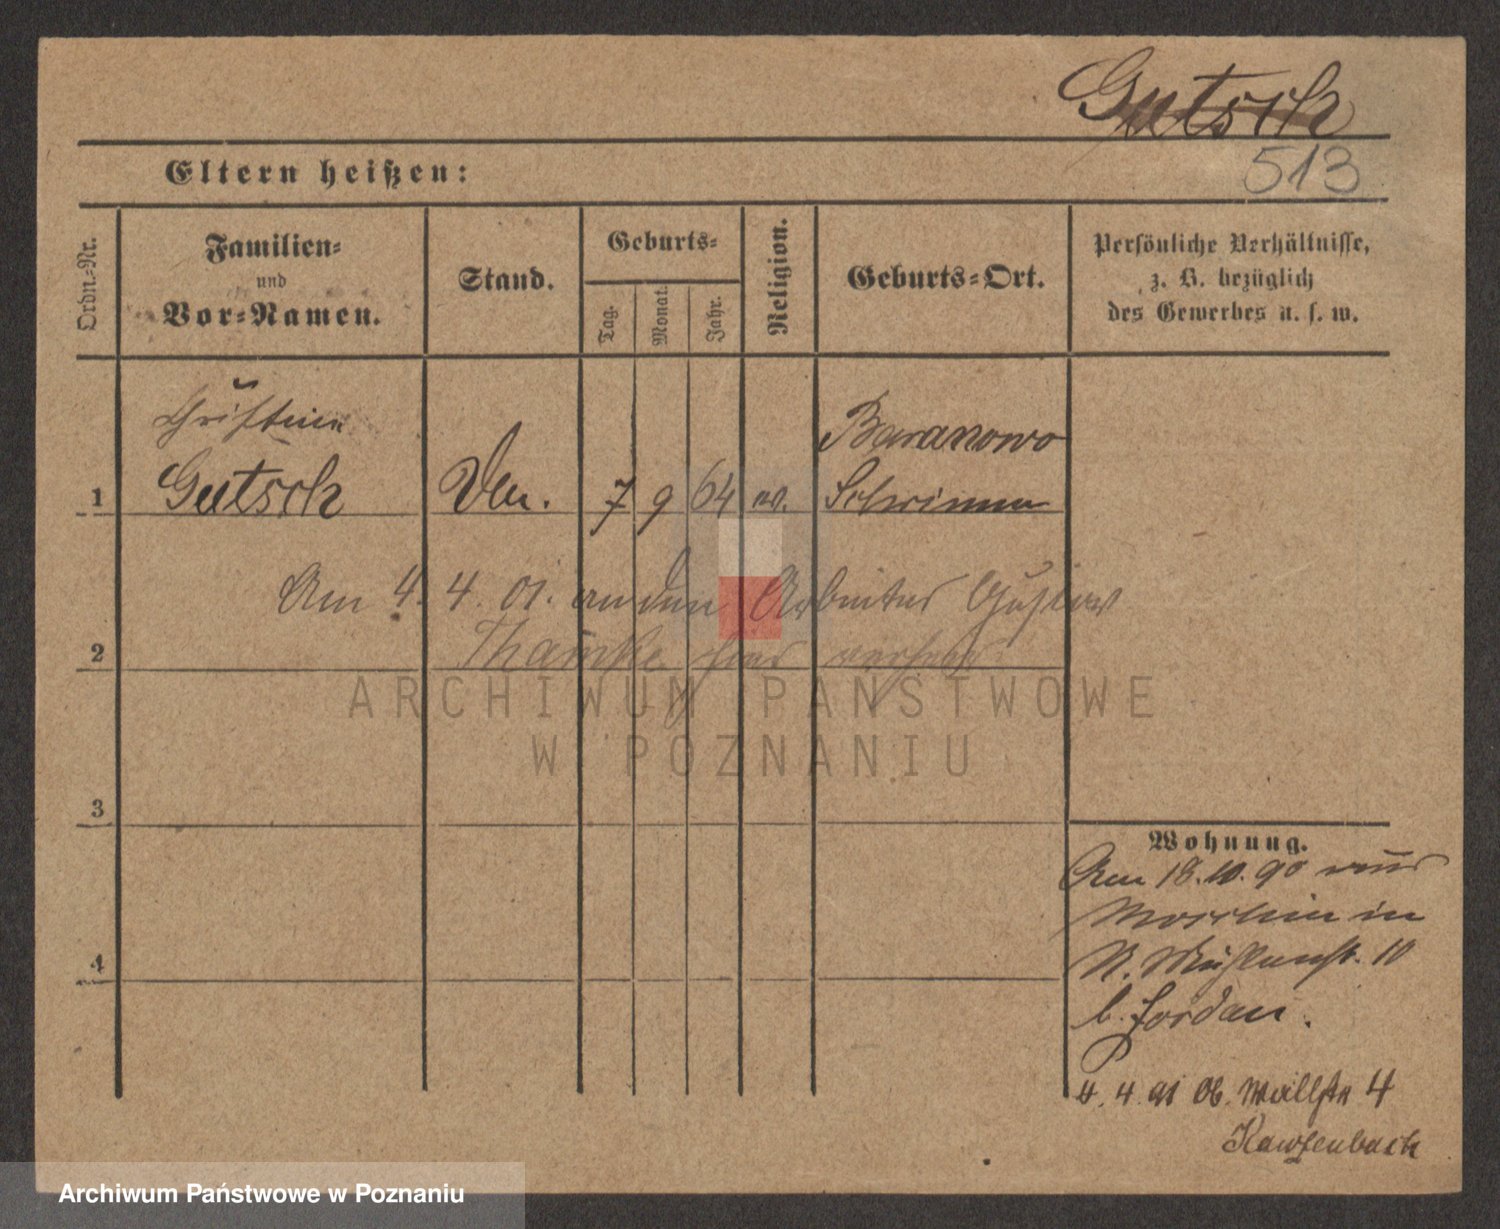 Gutsch
Eltern heißen:
513
Ordn.-Nr.
Familien-
und
Vor-Namen.
Stand.
Geburts-
Tag.
Monat.
Jahr.
Religion.
Geburts-Ort.
Persönliche Verhältnisse,
z. B. bezüglich
des Gewerbes u. s. w.
Christine Baranowo
1 Gutsch 7 9 64 Schrimm
Am 4. 4. 01. an den Arbeiter Gustav
2 hier
ARCHIWUM PAŃSTWOWE
W POZNANIU
3
Wohnung.
Am 18. 10. 90 aus
Moschin in
4 10
b. Jordan.
4. 4. 91 Ob. Wallstr 4
Archiwum Państwowe w Poznaniu